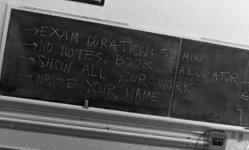 →EXAM DURATION: 5 MIN
→NO NOTES, BOOK, CALCULATOR
→SHOW ALL YOUR WORK
→WRITE YOUR NAME